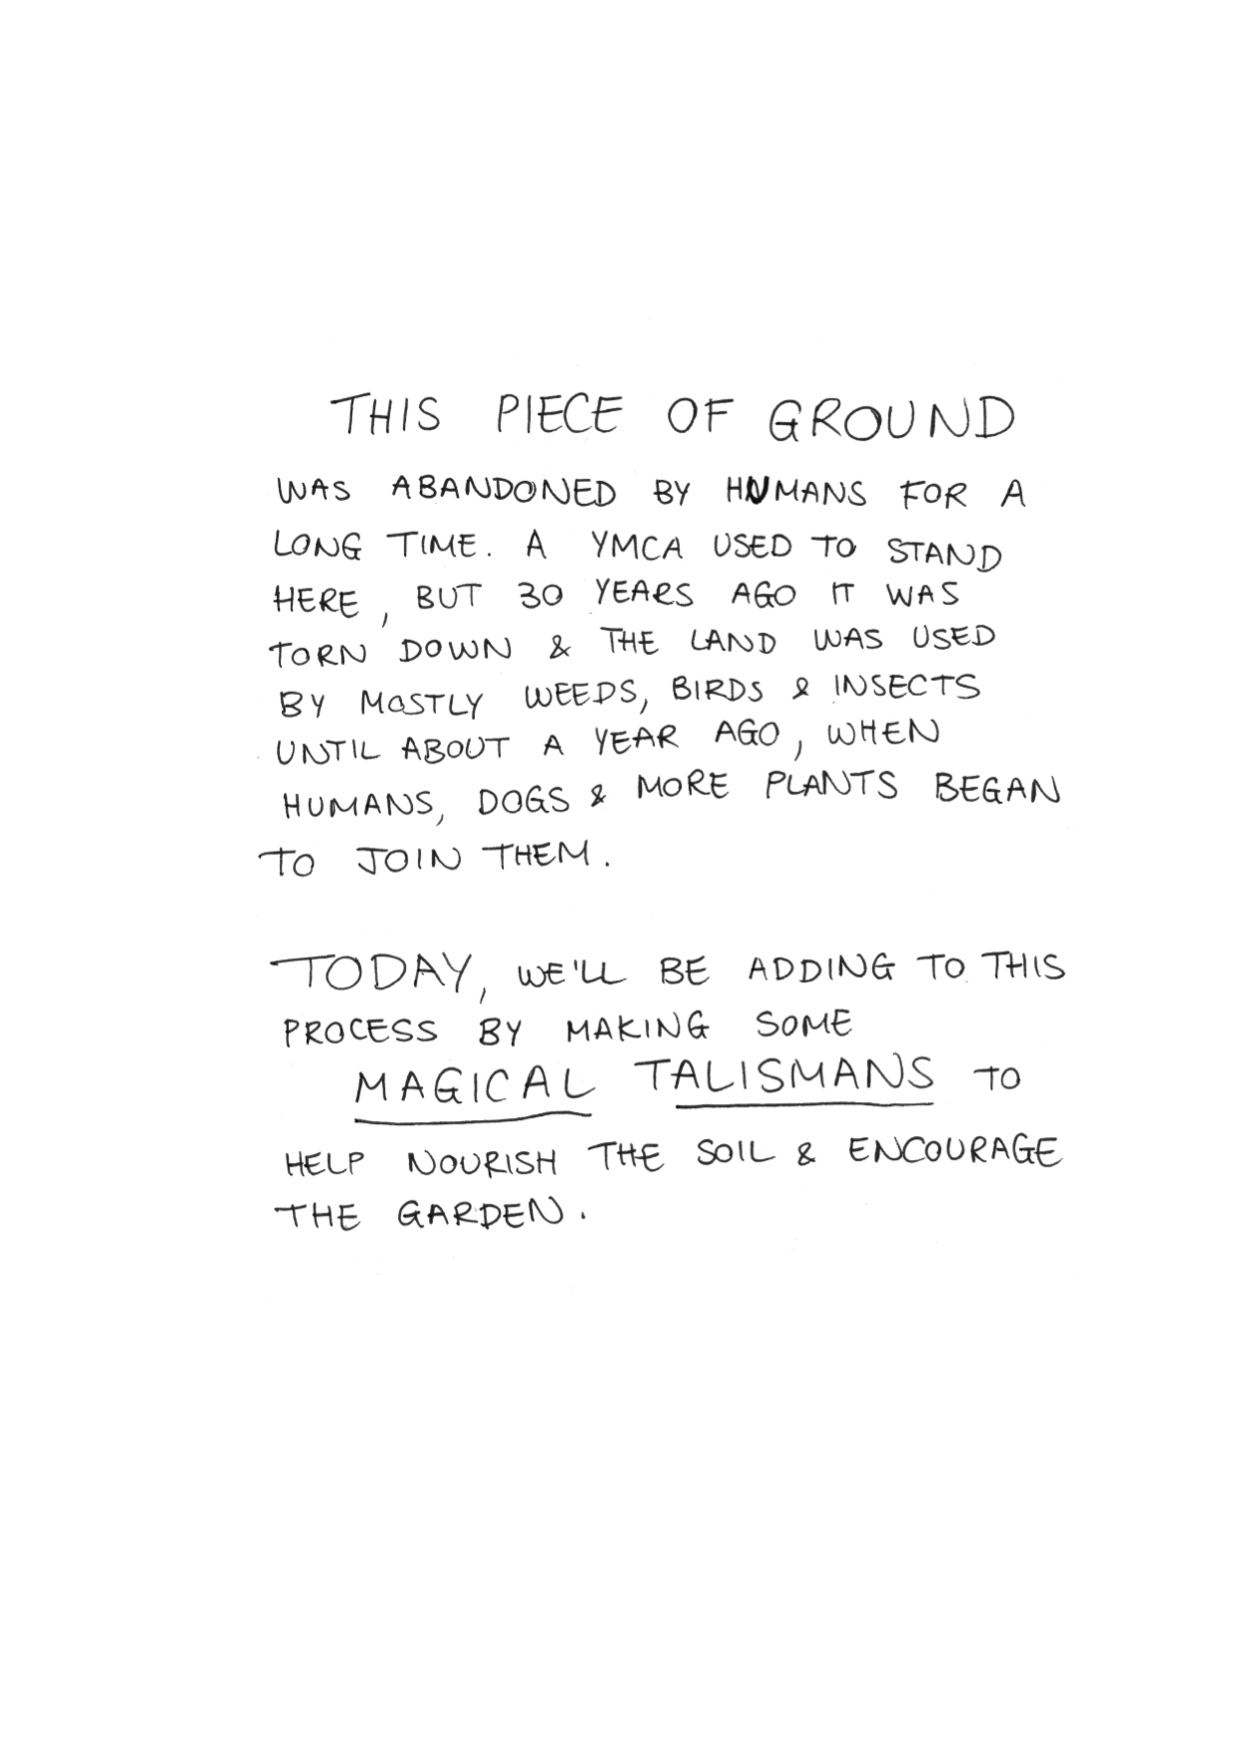 THIS PIECE OF GROUND
WAS ABANDONED BY HUMANS FOR A
LONG TIME. A YMCA USED TO STAND
HERE, BUT 30 YEARS AGO IT WAS
TORN DOWN & THE LAND WAS USED
BY MOSTLY WEEDS, BIRDS & INSECTS
UNTIL ABOUT A YEAR AGO, WHEN
HUMANS, DOGS & MORE PLANTS BEGAN
TO JOIN THEM.
TODAY, WE'LL BE ADDING TO THIS
PROCESS BY MAKING SOME
MAGICAL TALISMANS TO
HELP NOURISH THE SOIL & ENCOURAGE
THE GARDEN.